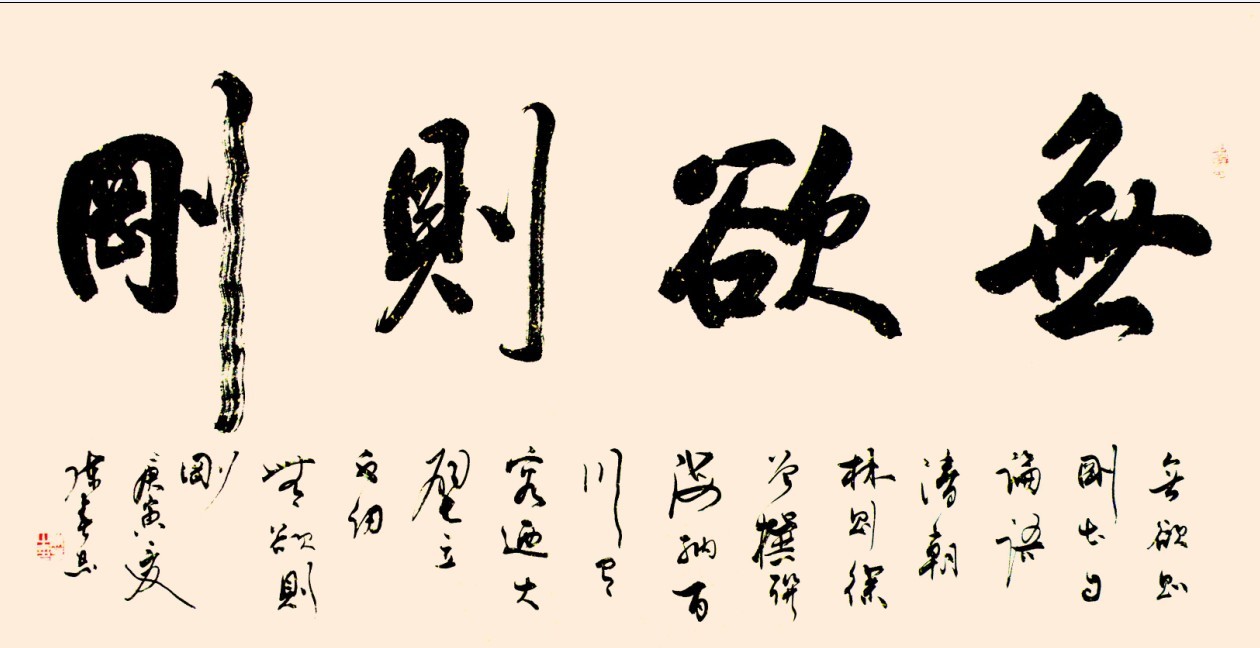 無欲則剛
無欲則
剛出自
論語
清朝
林則徐
曾撰聯
海納百
川有
容迺大
壁立
千仞
無欲則
剛
庚寅夏